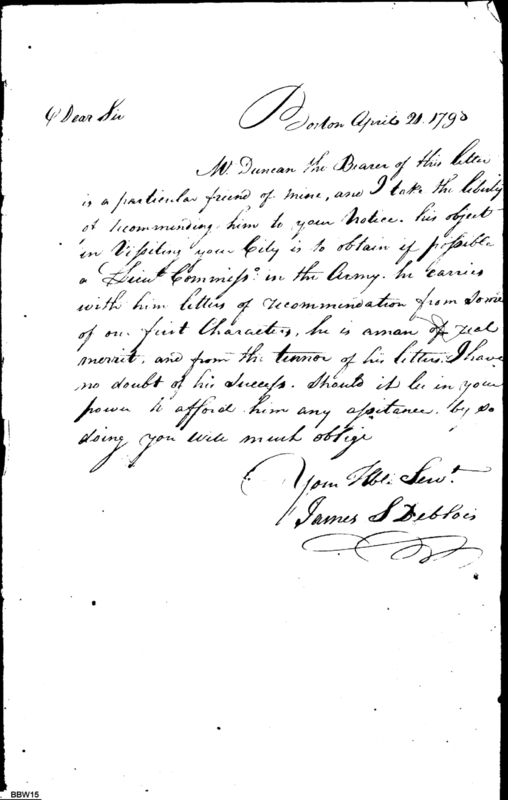 Dear Sir Boston April 21. 1798
Mr. Duncan the Bearer of this letter
is a particular friend of mine, and I take the liberty
of recommending him to your Notice. his object
in Vissiting your City is to obtain if possible
a Lieut. Commisso. in the Army. he carries
with him letters of recommendation from some
of our first Characters, he is a man of real
merrit, and from the tennor of his letters. I have
no doubt of his success. Should it be in your
power to afford him any assitance. by so
doing you will much oblige
Your Hbl. Servt.
James S Deblois
BBW15